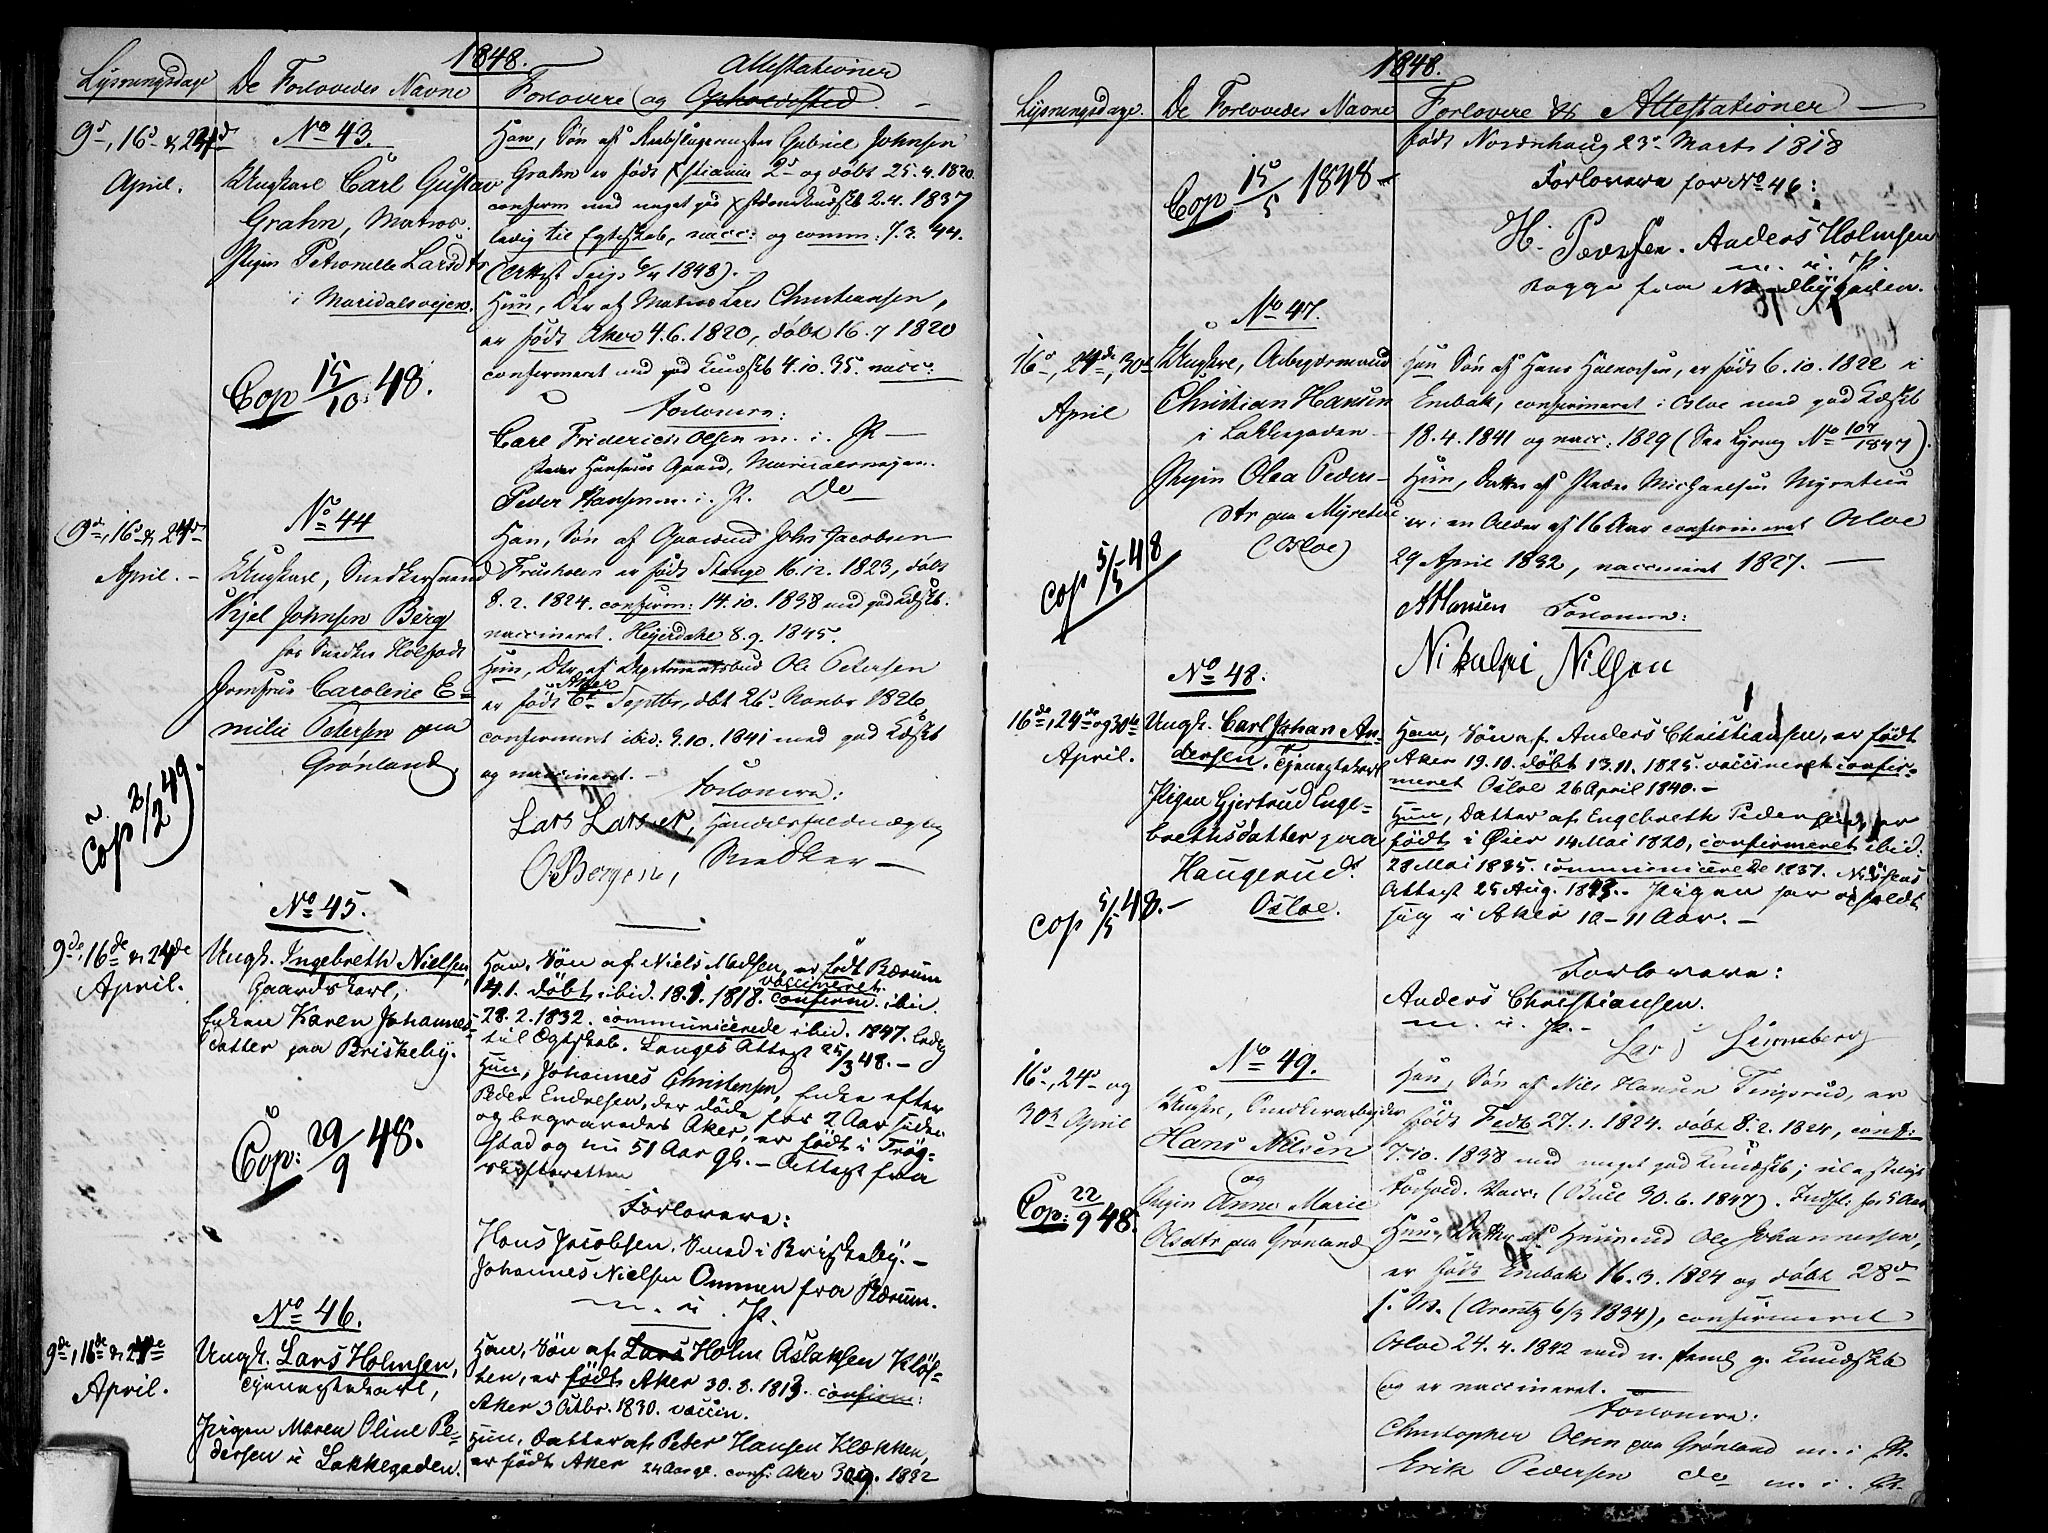 1848.
Lysningsdage De Forlovedes Navne Forlovere og Attestationer Opholdssted.
9d, 16d & 24d
April.
No 43.
Ungkarl Carl Gustav
Grahn, Matros.
Pigen Petronelle Larsdtr
i Maridalsvejen.
Cop 15/10 48.
Han, Søn af Gabriel Johnsen
Grahn er født Xstiania og døbt 25.4.1820
confirm med meget god Xstdomskundskb 2.4.1837
ledig til Egteskab, vacc: og comm: 7.2.44.
(Attest 6/4 1848). –
Hun, Dtr af Matros Lars Christiansen,
er født Aker 4.6.1820, døbt 16.7 1820
confirmeret med god Kundskb 4.10.35. vacc.
Forlovere:
Carl Friderich Olsen m. i. P. –
Maridalsvejen.
Peder Hansen m. i. P. Do
9de, 16d & 24d
April. –
No 44
Ungkarl, Snedkersvend
Kjel Johnsen Berg
hos Snedker
Jomfrue Caroline E-
milie Petersen paa
Grønland.
Cop 2/2 49.
Han, Søn af Gaardmd John Jacobsen
er født Stange 16.12.1823, døbt
8.2.1824. confirm: 14.10.1838 med god Kdskb.
vaccineret. Heyerdahl 8.9.1845.
Hun, Dtr. af Departmentsbud Ole Petersen
Aker
er født 6te Septbr, dbt 26d Novbr 1826,
confirmeret ibid. 3.10.1841 med god Kdskb
og vaccineret. –
Forlovere:
Lars Larsen,
O. Bergen, Snedker –
9de, 16de & 24de
April.
No 45.
Ungk. Ingebreth Nielsen,
Gaardskarl,
Enken Karen Johannes-
datter paa Briskeby.
Cop: 29/9 48.
Han, Søn af Niels Madsen er født Bærum
14.1. døbt ibid. 18.1.1818. vaccineret. confirm. ibid.
28.2.1832. communicerede ibid. 1847. ledig
til Egtskab. Langes Attest 25/3 48. –
Hun, Johannes Christensen, Enke efter
Peder Endresen, der døde for 2 Aar siden
og begravedes Aker, er født i Trøg-
stad og nu 51 Aar gl. – Attest fra
Skifteretten
Forlovere:
Hans Jacobsen. Smed i Briskeby. –
Johannes Nielsen Ommen fra Bærum.
m. i. P.
9de, 16de & 24de
April.
No 46.
Ungk. Lars Holmsen,
Tjenestekarl,
Pigen Maren Oline Pe-
dersen i Lakkegaden.
Han, Søn af Lars Holm Aslaksen Kløf-
ten, er født Aker 30.8.1813. confirm:
Aker 3 Octbr. 1830. vaccin.
Hun, Datter af Peder Hansen Klækken,
er født Aker 24 Aar gl. conf: Aker 1832
1848.
Lysningsdage. De Forlovedes Navne Forlovere og Attestationer –
født Nordrehaug 23d Marts 1818
Cop 15/5 1848 –
Forlovere for No 46:
H. Pedersen. Anders Holmsen
m. i. P.
begge fra
16d, 24de, 30d
April
No 47.
Ungkarl, Arbejdsmand
Christian Hansen
i Lakkegaden –
Pigen Olea Peders-
dtr paa Myretue
(Osloe)
cop 5/5 48
Han Søn af Hans Halvorsen, er født 6.10.1822 i
Enebak, confirmeret i Osloe med god Kdskb
18.4.1841 og vacc: 1829 (See Lysng No 107/1847).
Hun, Datter af Peder Michaelsen Myretue
er i en Alder af 16 Aar confirmeret Osloe
29 April 1832, vaccineret 1827. –
A Hansen
Forlovere:
Nikolai Nilsen
16de, 24de og 30te
April.
No 48.
Ungk. Carl Johan An-
dersen, Tjenestekarl
Pigen Gjertrud Enge-
brethsdatter paa
Haugerud.
Osloe.
cop 5/5 48. –
Han, Søn af Anders Christiansen, er født
Aker 19.10. døbt 13.11.1825. vaccineret confir-
meret Osloe 26 April 1840. –
Hun, Datter af Engebreth Pedersen er
født i Øier 14 Mai 1820, confirmeret ibid:
28 Mai 1835. communicerede 1837.
Attest 25 Aug. 1843. Pigen har opholdt
sig i Aker 10-11 Aar. –
Forlovere:
Anders Christiansen.
m. i. P. –
Lars Linneberg
16d, 24d og
30te April
No 49.
Ungkr, Snedkerarbejder
Hans Nilsen
og
Pigen Anne Marie
Olsdtr paa Grønland
Cop: 22/9 48.
Han, Søn af Nils Hansen, er
født 27.1.1824. døbt 8.2.1824, conf:
7.10.1838 med meget god Kundskb;
Forhold. Vacc. (Bull 30.6.1847).
Hun, Datter af Huusmd Ole Johannessen,
er født Enebak 16.3.1824 og døbt 28de
s. M. (Arentz 6/3 1834), confirmeret
Osloe 24.4.1842 med Kundskb
og er vaccineret.
Forlovere:
Christopher Olsen paa Grønland m. i. P.
Erik Pedersen do m. i. P.